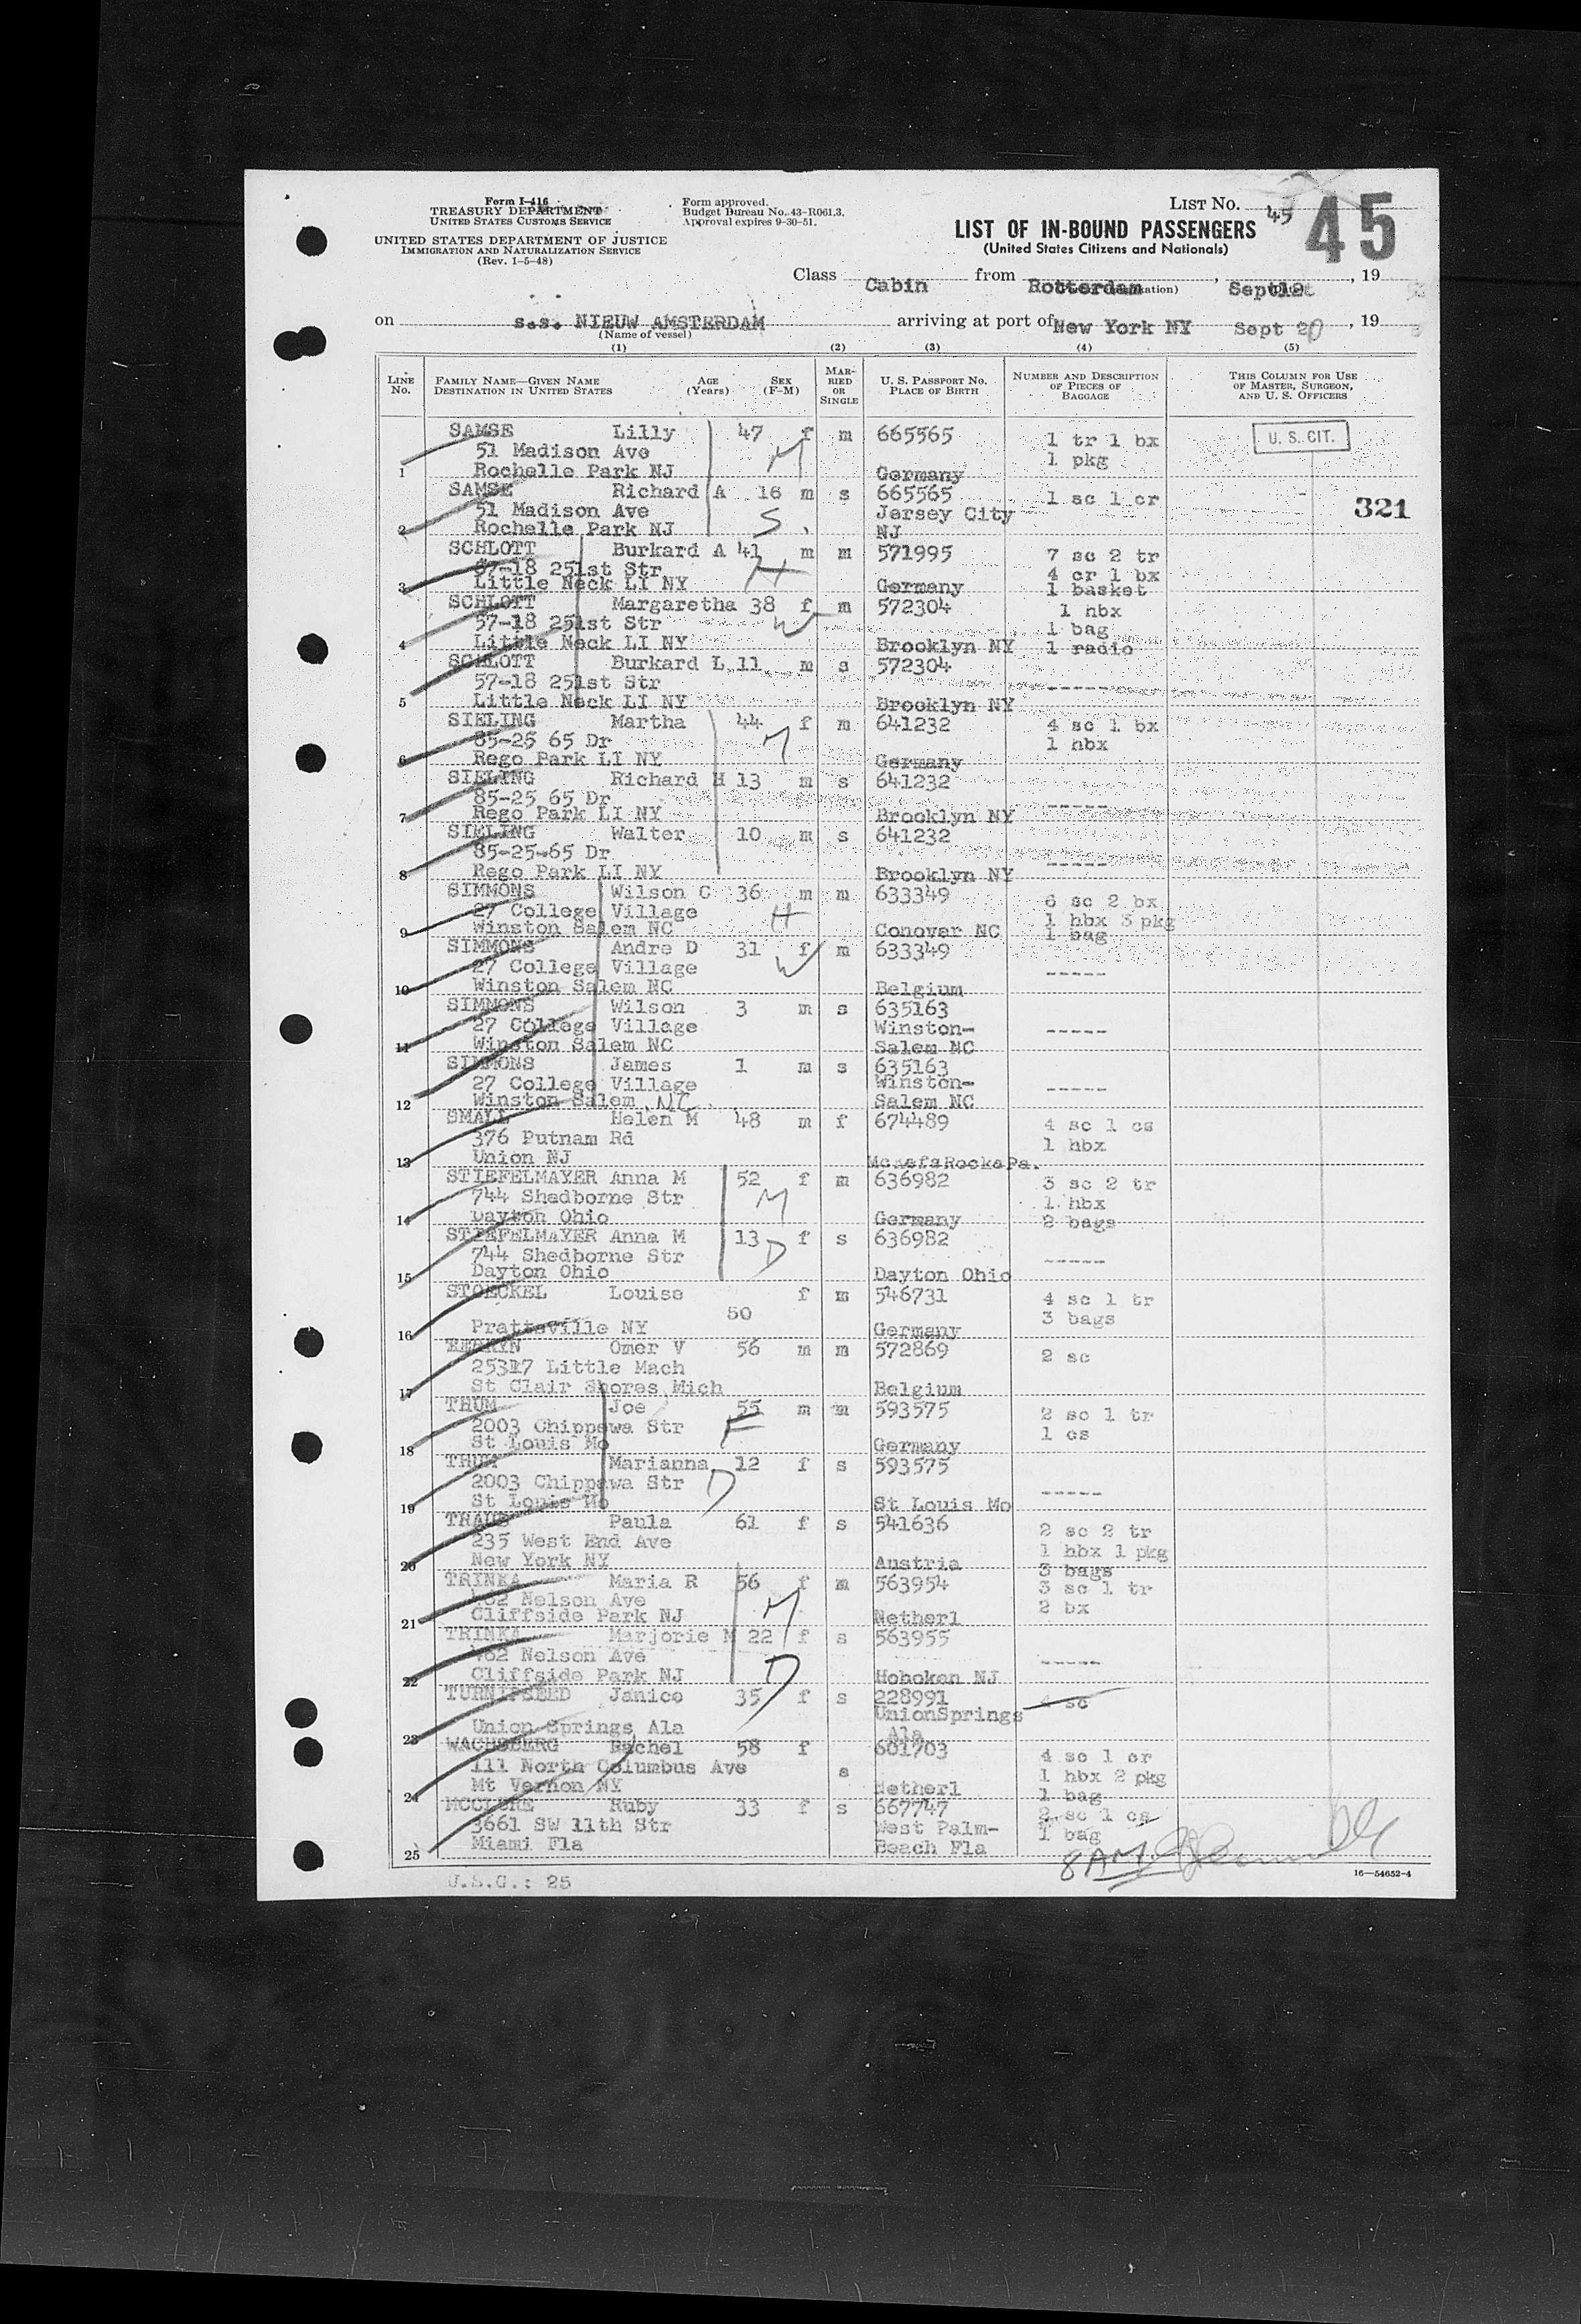 Form I-416
TREASURY DEPARTMENT
UNITED STATES CUSTOMS SERVICE
UNITED STATES DEPARTMENT OF JUSTICE
IMMIGRATION AND NATURALIZATION SERVICE
(Rev. 1-5-48)
Form approved.
Budget Bureau No. 43-R061.3.
Approval expires 9-30-51.
LIST No. 45
45
LIST OF IN-BOUND PASSENGERS
(United States Citizens and Nationals)
Class Cabin from Rotterdam, Sept 12, 19
on s.s. NIEUW AMSTERDAM arriving at port of New York NY Sept 20, 19
(Name of vessel)
(1) (2) (3) (4) (5)
LINE No. FAMILY NAME—GIVEN NAME DESTINATION IN UNITED STATES AGE (Years) SEX (F-M) MARRIED OR SINGLE U. S. PASSPORT No. PLACE OF BIRTH NUMBER AND DESCRIPTION OF PIECES OF BAGGAGE THIS COLUMN FOR USE OF MASTER, SURGEON, AND U. S. OFFICERS
SAMSE Lilly 47 f m 665565 1 tr 1 bx U. S. CIT.
51 Madison Ave M 1 pkg
1 Rochelle Park NJ Germany
SAMSE Richard A 16 m s 665565 1 sc 1 cr 321
51 Madison Ave S Jersey City
2 Rochelle Park NJ NJ
SCHLOTT Burkard A 41 m m 571995 7 sc 2 tr
57-18 251st Str H 4 cr 1 bx
3 Little Neck LI NY Germany 1 basket
SCHLOTT Margaretha 38 f m 572304 1 hbx
57-18 251st Str W 1 bag
4 Little Neck LI NY Brooklyn NY 1 radio
SCHLOTT Burkard L 11 m s 572304
57-18 251st Str -----
5 Little Neck LI NY Brooklyn NY
SIELING Martha 44 f m 641232 4 sc 1 bx
85-25 65 Dr M 1 hbx
6 Rego Park LI NY Germany
SIELING Richard H 13 m s 641232
85-25 65 Dr -----
7 Rego Park LI NY Brooklyn NY
SIELING Walter 10 m s 641232
85-25-65 Dr -----
8 Rego Park LI NY Brooklyn NY
SIMMONS Wilson C 36 m m 633349 6 sc 2 bx
27 College Village H 1 hbx 3 pkg
9 Winston Salem NC Conover NC 1 bag
SIMMONS Andre D 31 f m 633349
27 College Village W -----
10 Winston Salem NC Belgium
SIMMONS Wilson 3 m s 635163
27 College Village Winston- -----
11 Winston Salem NC Salem NC
SIMMONS James 1 m s 635163
27 College Village Winston- -----
12 Winston Salem NC Salem NC
SMALL Helen M 48 m f 674489 4 sc 1 cs
376 Putnam Rd 1 hbx
13 Union NJ
STIEFELMAYER Anna M 52 f m 636982 3 sc 2 tr
744 Shedborne Str M 1 hbx
14 Dayton Ohio Germany 2 bags
STIEFELMAYER Anna M 13 f s 636982
744 Shedborne Str D -----
15 Dayton Ohio Dayton Ohio
STOECKEL Louise f m 546731 4 sc 1 tr
50 3 bags
16 Prattsville NY Germany
Omer V 56 m m 572869 2 sc
25317 Little Mach
17 St Clair Shores Mich Belgium
THUM Joe 55 m m 593575 2 sc 1 tr
2003 Chippewa Str F 1 cs
18 St Louis Mo Germany
THUM Marianna 12 f s 593575
2003 Chippewa Str D -----
19 St Louis Mo St Louis Mo
Paula 61 f s 541636 2 sc 2 tr
235 West End Ave 1 hbx 1 pkg
20 New York NY Austria 3 bags
TRINKA Maria R 56 f m 563954 3 sc 1 tr
462 Nelson Ave M 2 bx
21 Cliffside Park NJ Netherl
TRINKA Marjorie M 22 f s 563955
462 Nelson Ave D -----
22 Cliffside Park NJ Hoboken NJ
TURNIPSEED Janice 35 f s 228991 4 sc
UnionSprings
23 Union Springs Ala Ala
WACHSBERG Rachel 58 f 601703 4 sc 1 cr
111 North Columbus Ave s 1 hbx 2 pkg
24 Mt Vernon NY Netherl 1 bag
MCCLURE Ruby 33 f s 667747 2 sc 1 cs
3661 SW 11th Str West Palm- 1 bag
25 Miami Fla Beach Fla
8 AM
U.S.C.: 25
16—54652-4